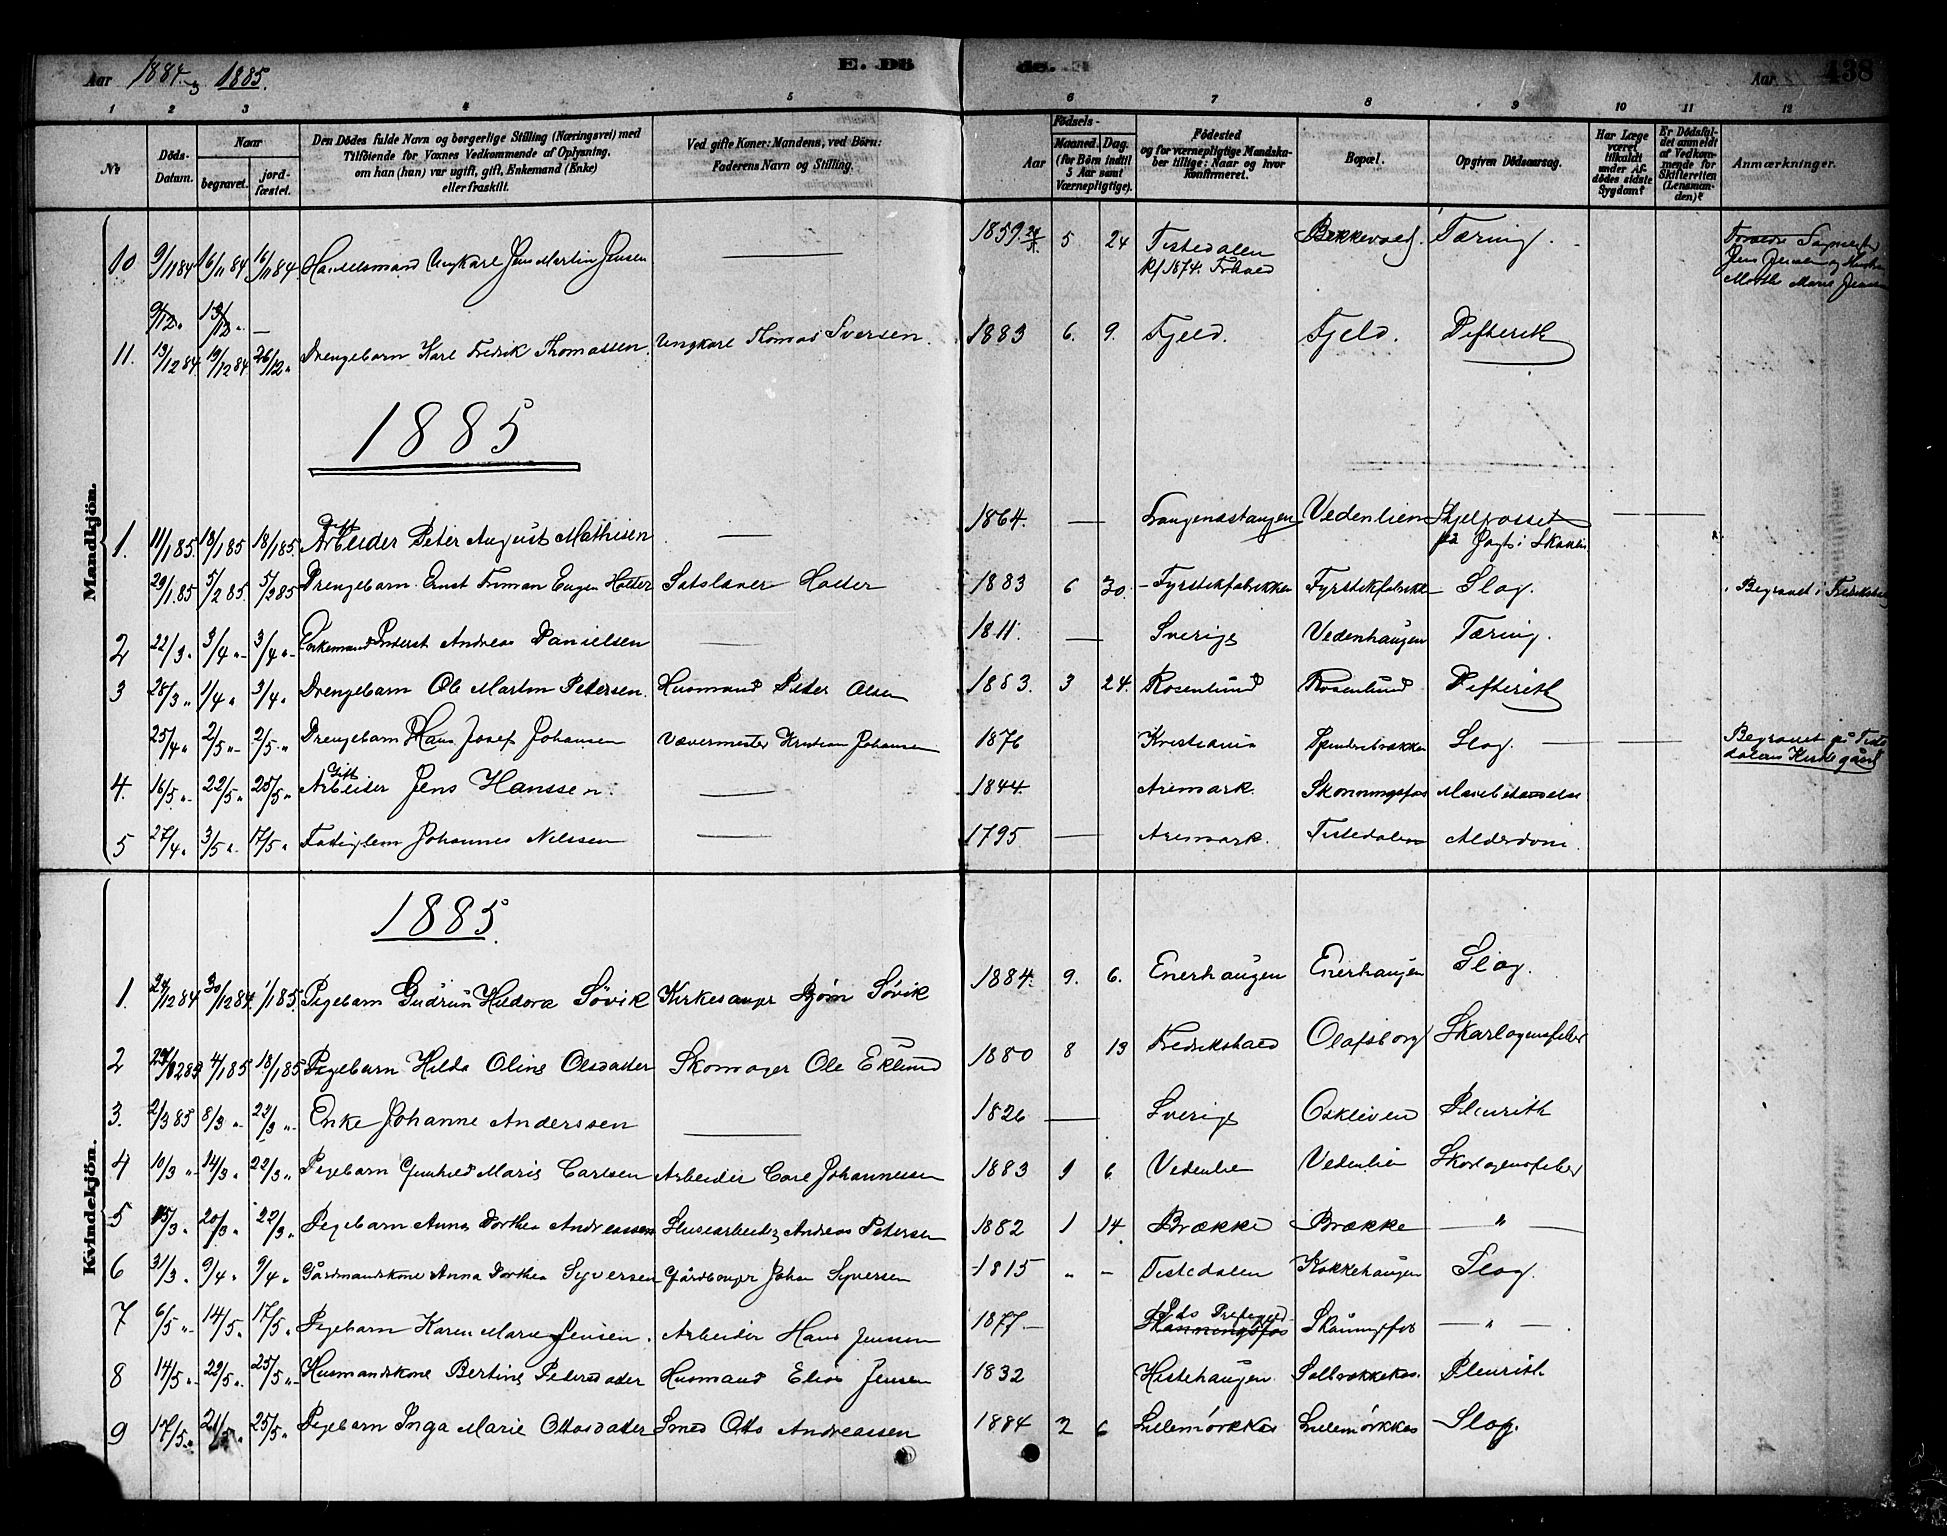 Aar 1884 og 1885.
E. Dö
de.
Aar
138
1 2 3 4 5 6 7 8 9 10 11 12
No
Döds-Datum.
Naar
begravet. jord-fæstet.
Den Dödes fulde Navn og borgerlige Stilling (Næringsvei) med
Tilföiende for Voxnes Vedkommende af Oplysning,
om han (hun) var ugift, gift, Enkemand (Enke)
eller fraskilt.
Ved gifte Koner: Mandens, ved Börn:
Faderens Navn og Stilling.
Födsels-
Aar
Maaned. Dag.
(for Börn indtil
5 Aar samt
Værnepligtige).
Födested
og for værnepligtige Mandska-
ber tillige: Naar og hvor
konfirmeret.
Bopæl.
Opgiven Dödsaarsag.
Har Læge
været
tilkaldt
under Af-
dödes sidste
Sygdom?
Er Dödsfal-
det anmeldt
af Vedkom-
mende for
Skifteretten
(Lensman-
den)?
Anmærkninger.
Mandkjön.
10 9/11 84 16/11 84 16/11 84 Handelsmand Ungkarl Jens Martin Jensen — 1859 5 24 Tistedalen Kf 1874. Frhald Bekkevold. Tæring. Jens Jensen og Marthe Marie Jensen
9/12 13/12 —
11. 13/12 84. 19/12 84 26/12 " Drengebarn Karl Fredrik Thomassen. Ungkarl Thomas Iversen. 1883 6. 9. Fjeld. Fjeld. Difterit
1885
1. 11/1 85. 18/1 85 18/1 85. Gift Arbeider Peter August Mathisen — 1864. — Langenæstangen Vedenlien Ihjelfrosset
29/1 85 5/2 85. 5/2 85 Drengebarn Ernst Truman Eugen Holter Holter 1883 6 30. Fyrstikfabrikken Fyrstikfabrikke Slag. Begravet i Fredrikshald
2 22/3 " 3/4 " 3/4 " Enkemand Inderst Andreas Danielsen — 1811. — Sverige Vedenhaugen Tæring.
3 28/3 " 1/4 " 3/4 " Drengebarn Ole Martin Petersen. Husmand Peter Olsen 1883. 3 24. Rosenlund Rosenlund Difterith
25/4 " 2/5 " 2/5 " Drengebarn Hans Josef Johansen Vævermester Kristian Johansen 1876 Kristiania Slag. — — Begravet på Tistedalens Kirkegård
4. 16/5 " 22/5 " 25/5 " Gift Arbeider Jens Hanssen. — 1844. Aremark. Skonningsfos
5 27/4 " 3/5 " 17/5 " Fattiglem Johannes Nilssen — 1795 — Aremark. Tistedalen Alderdom.
Kvindekjön.
1885.
1. 24/12 84 30/12 84. 1/1 85. Pigebarn Gudrun Hildora Søvik Kirkesanger Bjørn Søvik 1884. 9. 6. Enerhaugen Enerhaugen Slag.
2 4/1 85 18/1 85 Pigebarn Hilda Oline Olsdatter Skomager Ole Eklund 1880 8 13 Fredrikshald Olafsborg Skarlagensfeber
3. 2/3 85 8/3 " 22/3 " Enke Johanne Anderssen — 1826 — Sverige Oskleven Pleurith
4 10/3 " 14/3 " 22/3 " Pigebarn Gunhild Marie Carlsen Arbeider Carl Johannessen 1883 1 6 Vedenlien Vedenlien Skarlagensfeber
5 15/3 " 20/3 " 22/3 " Pigebarn Anna Dorthea Andreassen Slusearbeider Andreas Petersen 1882 1 14. Brække Brække — " —
6 31/3 " 9/4 " 9/4 " Gårdmandskone Anna Dorthea Syversen Gårdbruger Johan Syversen 1815 " — Tistedalen Kokkehaugen Slag.
7 6/5 " 14/5 " 17/5 " Pigebarn Karen Marie Jensen. Arbeider Hans Jenssen 1877 — Skonningsfos Skonningsfos — " —
8 14/5 " 22/5 " 25/5 " Husmandskone Bertine Petersdatter Husmand Elias Jensen 1832 Histehaugen. Pleurith
9 17/5 " 21/5 " 25/5 " Pigebarn Inga Marie Ottosdatter Smed Otto Andreassen 1884 2 6 Lillemørkkas Lillemørkkas Slag.